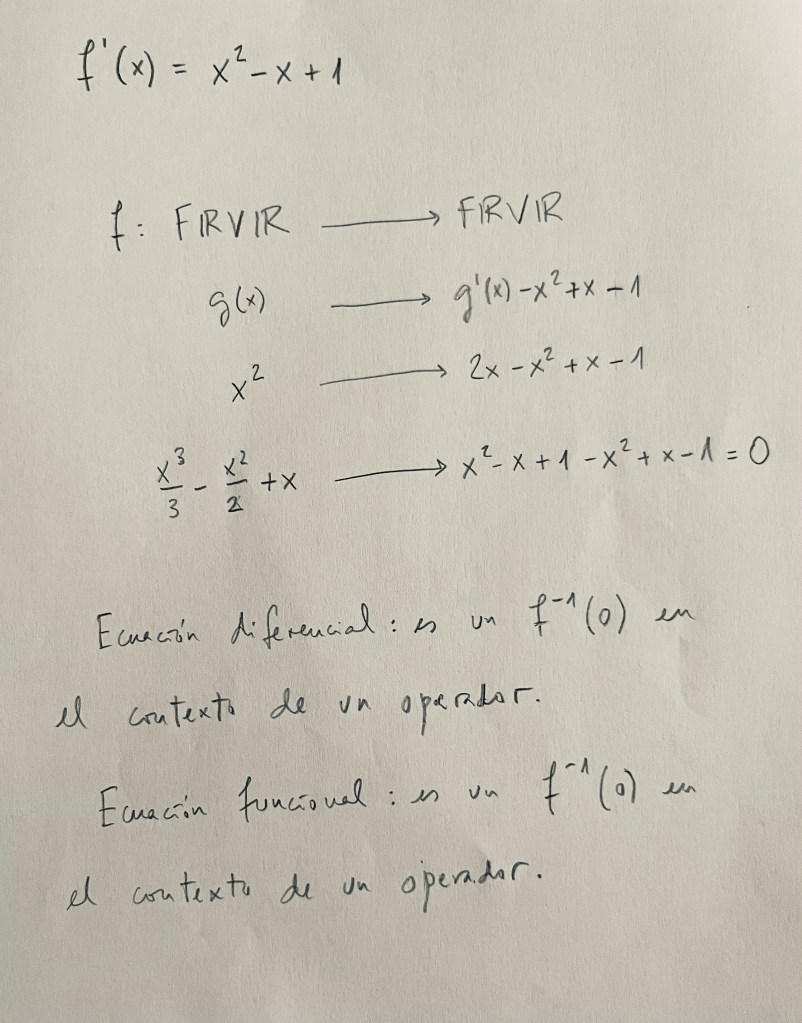 f'(x) = x² - x + 1
f: FIRVIR → FIRVIR
g(x) → g'(x) - x² + x - 1
x² → 2x - x² + x - 1
x³/3 - x²/2 + x → x² - x + 1 - x² + x - 1 = 0
Ecuación diferencial: es un f⁻¹(0) en
el contexto de un operador.
Ecuación funcional: es un f⁻¹(0) en
el contexto de un operador.